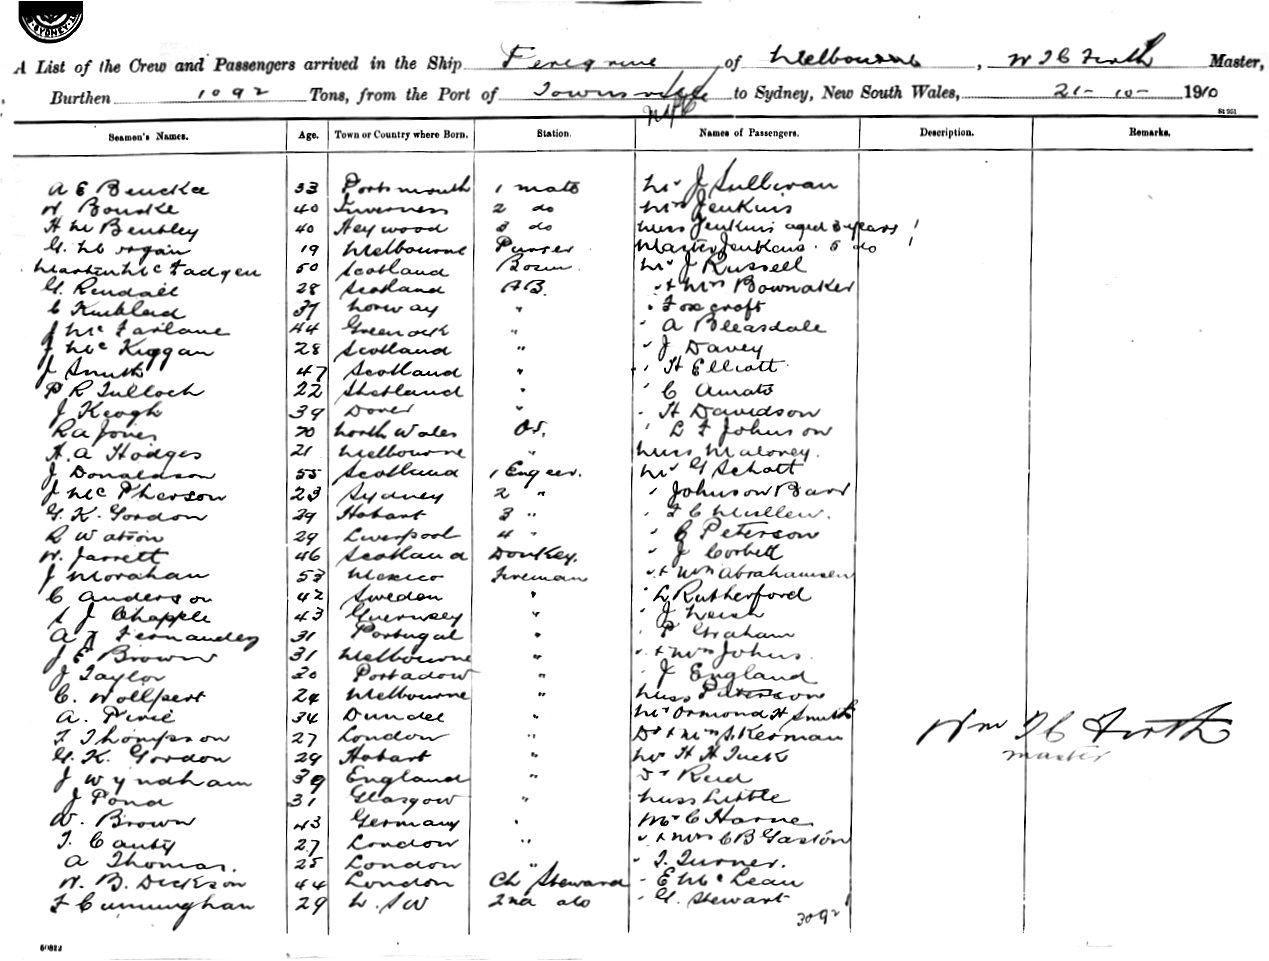 SYDNEY
A List of the Crew and Passengers arrived in the Ship Peregrine of Melbourne, W I C Firth Master,
Burthen 1092 Tons, from the Port of Townsville to Sydney, New South Wales, 21-10- 1910
St 951
Seamen's Names. Age. Town or Country where Born. Station. Names of Passengers. Description. Remarks.
A E 33 Portsmouth 1 mate Mr J Sullivan
W Bourke 40 Inverness 2 do Mrs Jenkins
H M Bentley 40 Heywood 3 do Miss Jenkins aged 3 years
G. 19 Melbourne Purser Master Jenkins. 5 do
Mc Fadyen 50 Scotland Bosun Mr J Russell
G. Kendall 28 Scotland AB. " + Mrs Bownaker
C Kirkland 37 Norway " " Foxcroft
J McFarlane 44 Greenock " " A Bleasdale
J McKiggan 28 Scotland " " J Davey
J Smith 47 Scotland " " H Elliott
P R Tulloch 22 Shetland " " C Amato
J Keogh 39 Dover " " H Davidson
R A Jones 20 North Wales OS. " L F Johnson
H. A Hodges 21 Melbourne " Miss Maloney.
J Donaldson 55 Scotland 1 Engeer. Mr G Schott
J McPherson 23 Sydney 2 " " Johnson Barr
G. K. Gordon 29 Hobart 3 " " F C Mullen.
R Watson 29 Liverpool 4 " " C Peterson
W. Jarrett 46 Scotland Donkey. " J Corbett
J Morahan 53 Mexico Fireman " + Mrs Abrahamsen
C Anderson 42 Sweden " " L Rutherford
S J Chapple 43 Guernsey " " J
A J Fernandez 31 Portugal " " P Graham
J E Brown 31 Melbourne " " + Mrs Johns.
J Taylor 20 Portadow " " J England
C. Wollpert 24 Melbourne " Miss Peterson
A. Pirie 34 Dundee " Mr Ormond H Smith
F Thompson 27 London " Dr + Mrs S. Kerman
G. K. Gordon 29 Hobart " Mr H H Tuck
J Wyndham 39 England " Dr Reid
J Pond 31 Glasgow " Miss Little
W. Brown 43 Germany " Mr C Horne
T. Canty 27 London " " + Mrs C B Gaston
A Thomas. 25 London " " T. Turner.
W. B. Dickson 44 London Ch Steward " E McLean
F Cunningham 29 N.S.W 2nd do " G. Stewart
Wm I C Firth
master
3092
50822